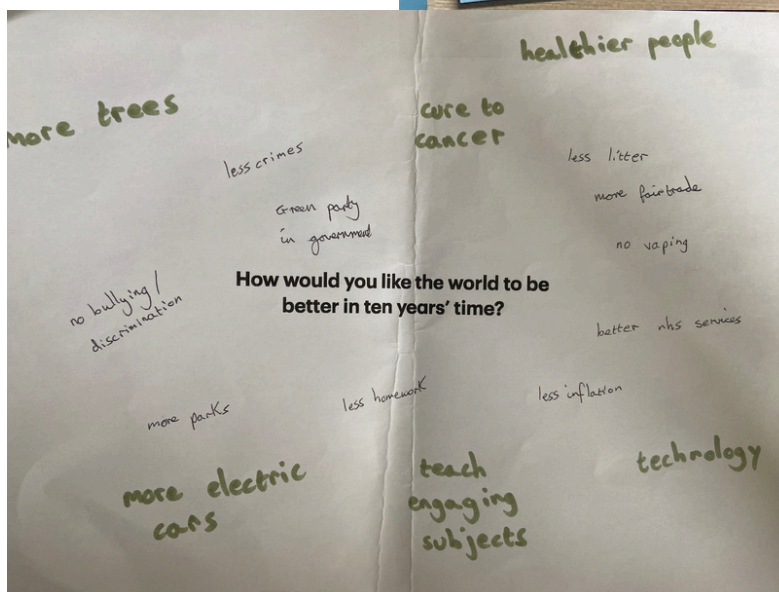 healthier people
more trees
cure to
cancer
less crimes
less litter
more fairtrade
Green party
in government
no vaping
How would you like the world to be
better in ten years' time?
no bullying /
discrimination
better nhs services
less homework
less inflation
more parks
technology
more electric
cars
teach
engaging
subjects